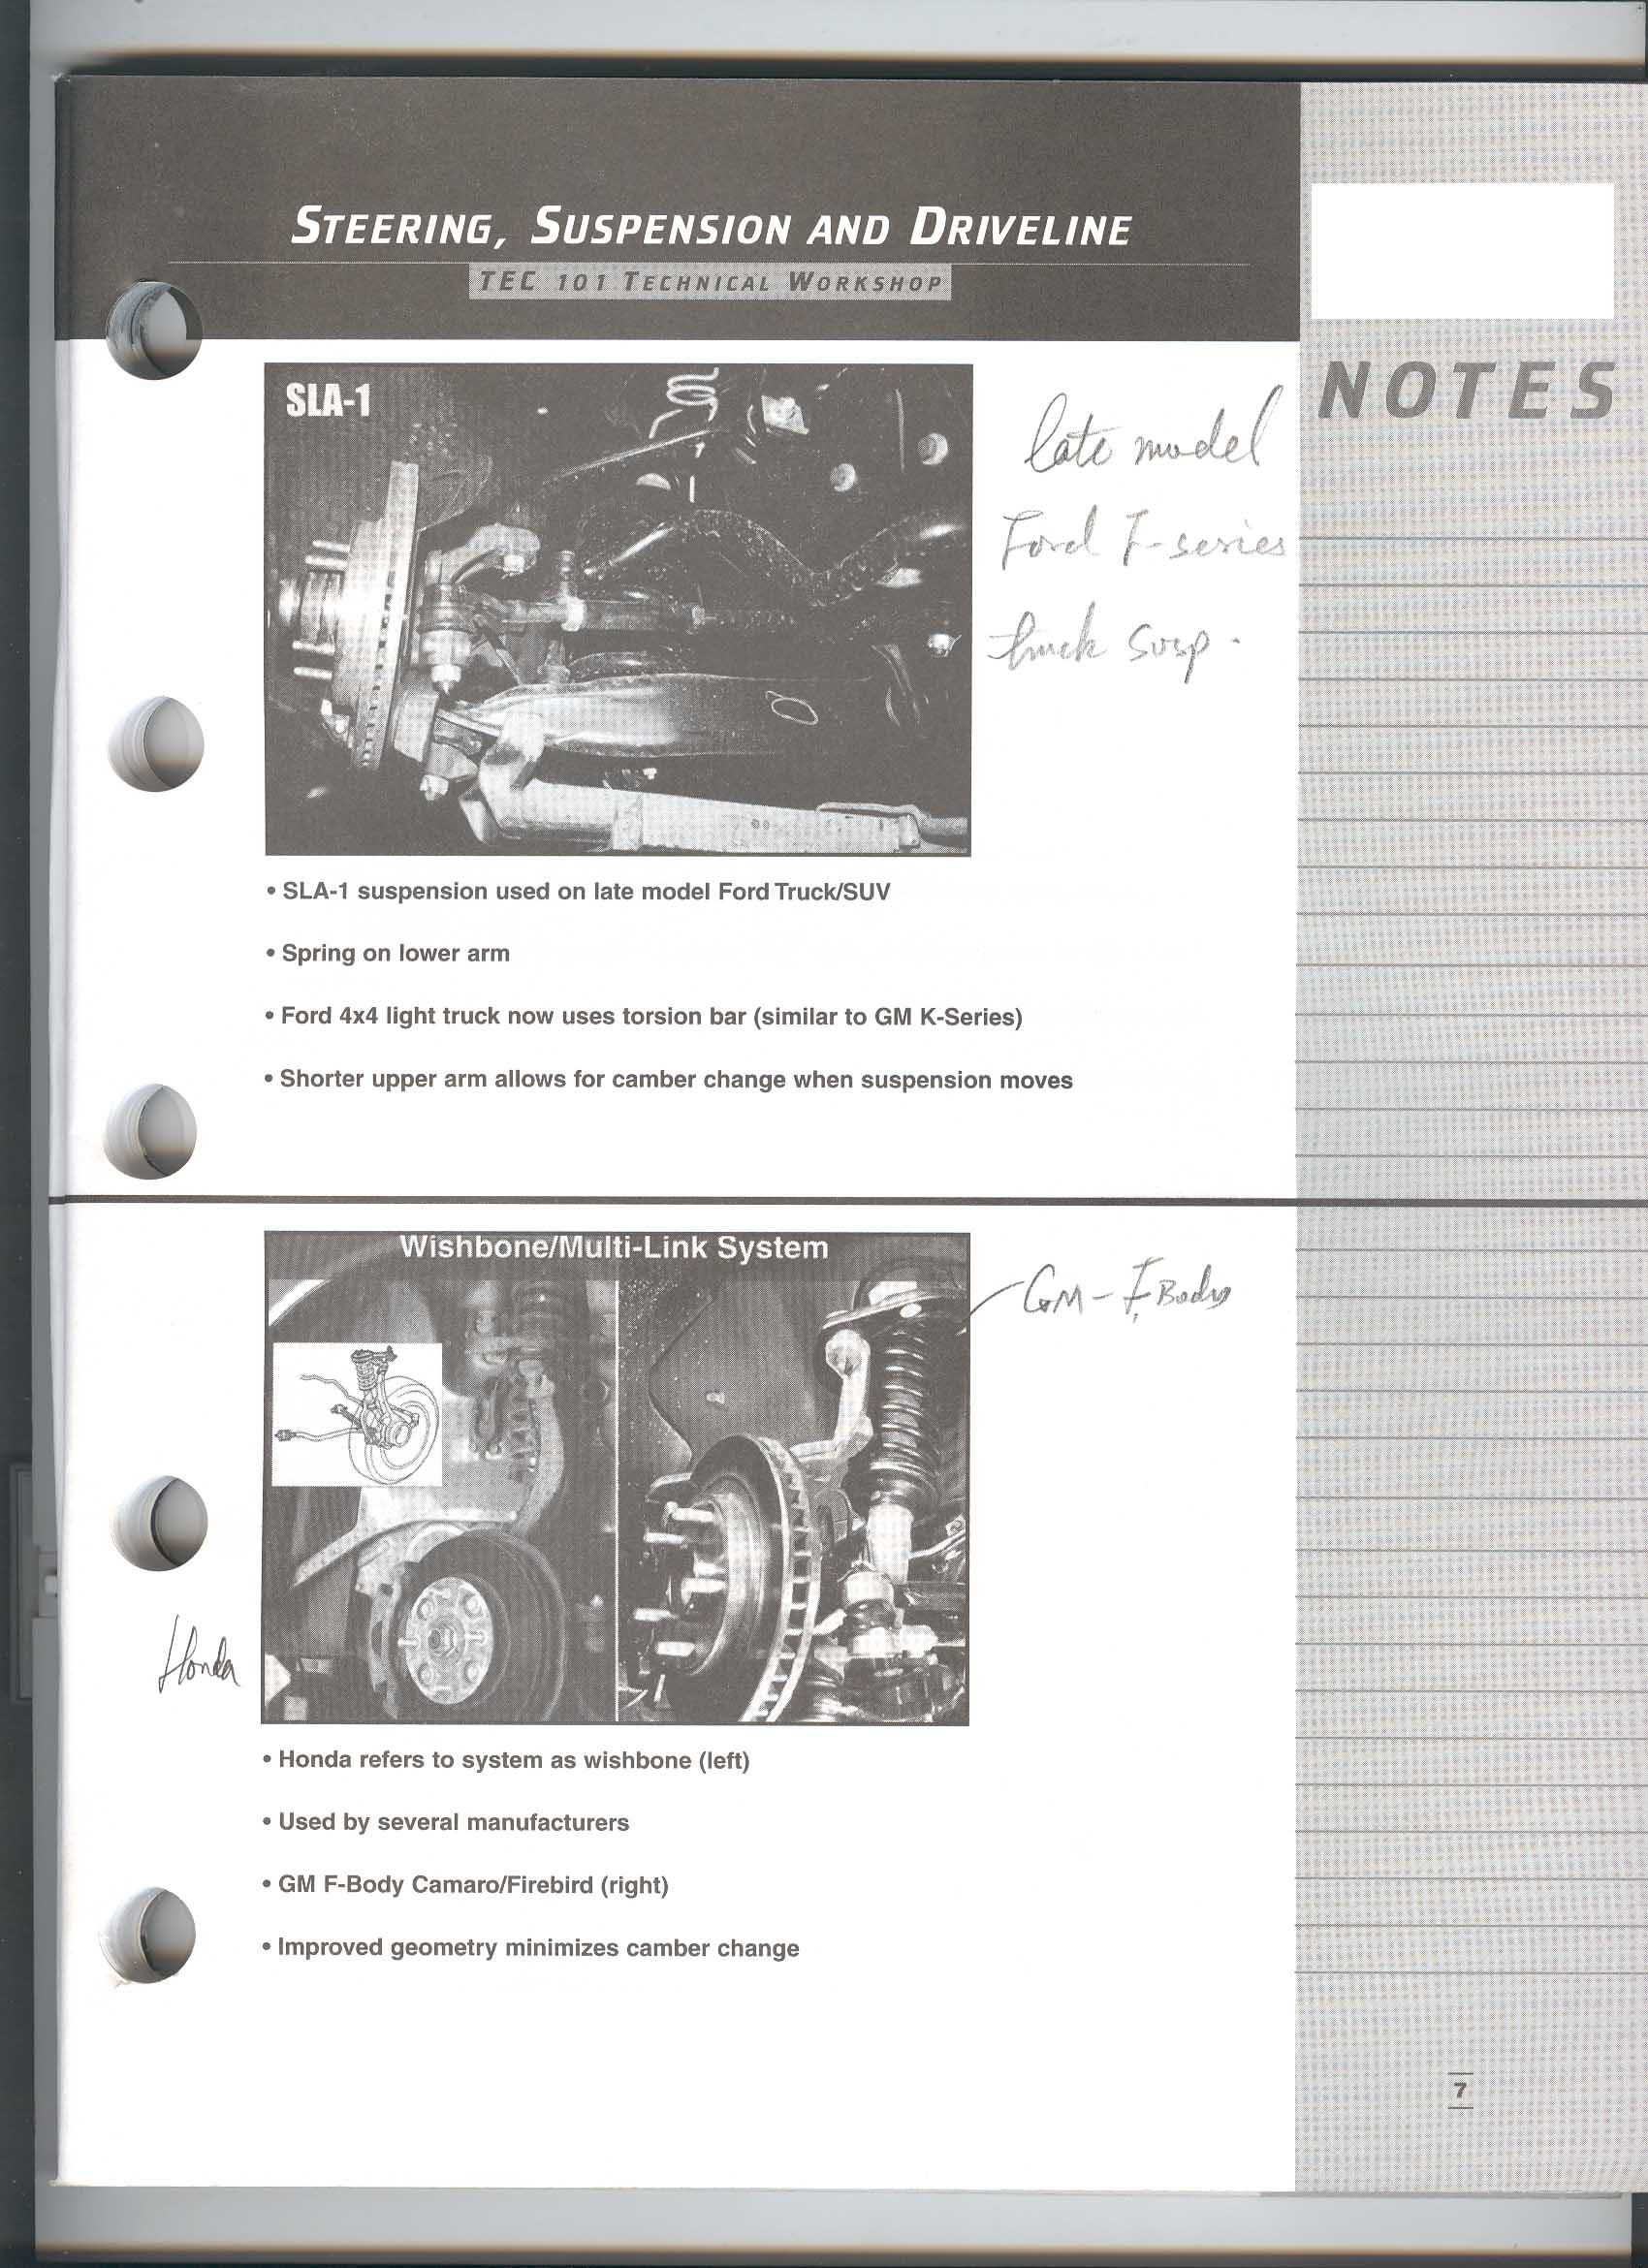 STEERING, SUSPENSION AND DRIVELINE
TEC 101 TECHNICAL WORKSHOP
NOTES
SLA-1
late model
Ford F-series
truck susp.
• SLA-1 suspension used on late model Ford Truck/SUV
• Spring on lower arm
• Ford 4x4 light truck now uses torsion bar (similar to GM K-Series)
• Shorter upper arm allows for camber change when suspension moves
Wishbone/Multi-Link System
GM - F, Body
Honda
• Honda refers to system as wishbone (left)
• Used by several manufacturers
• GM F-Body Camaro/Firebird (right)
• Improved geometry minimizes camber change
7